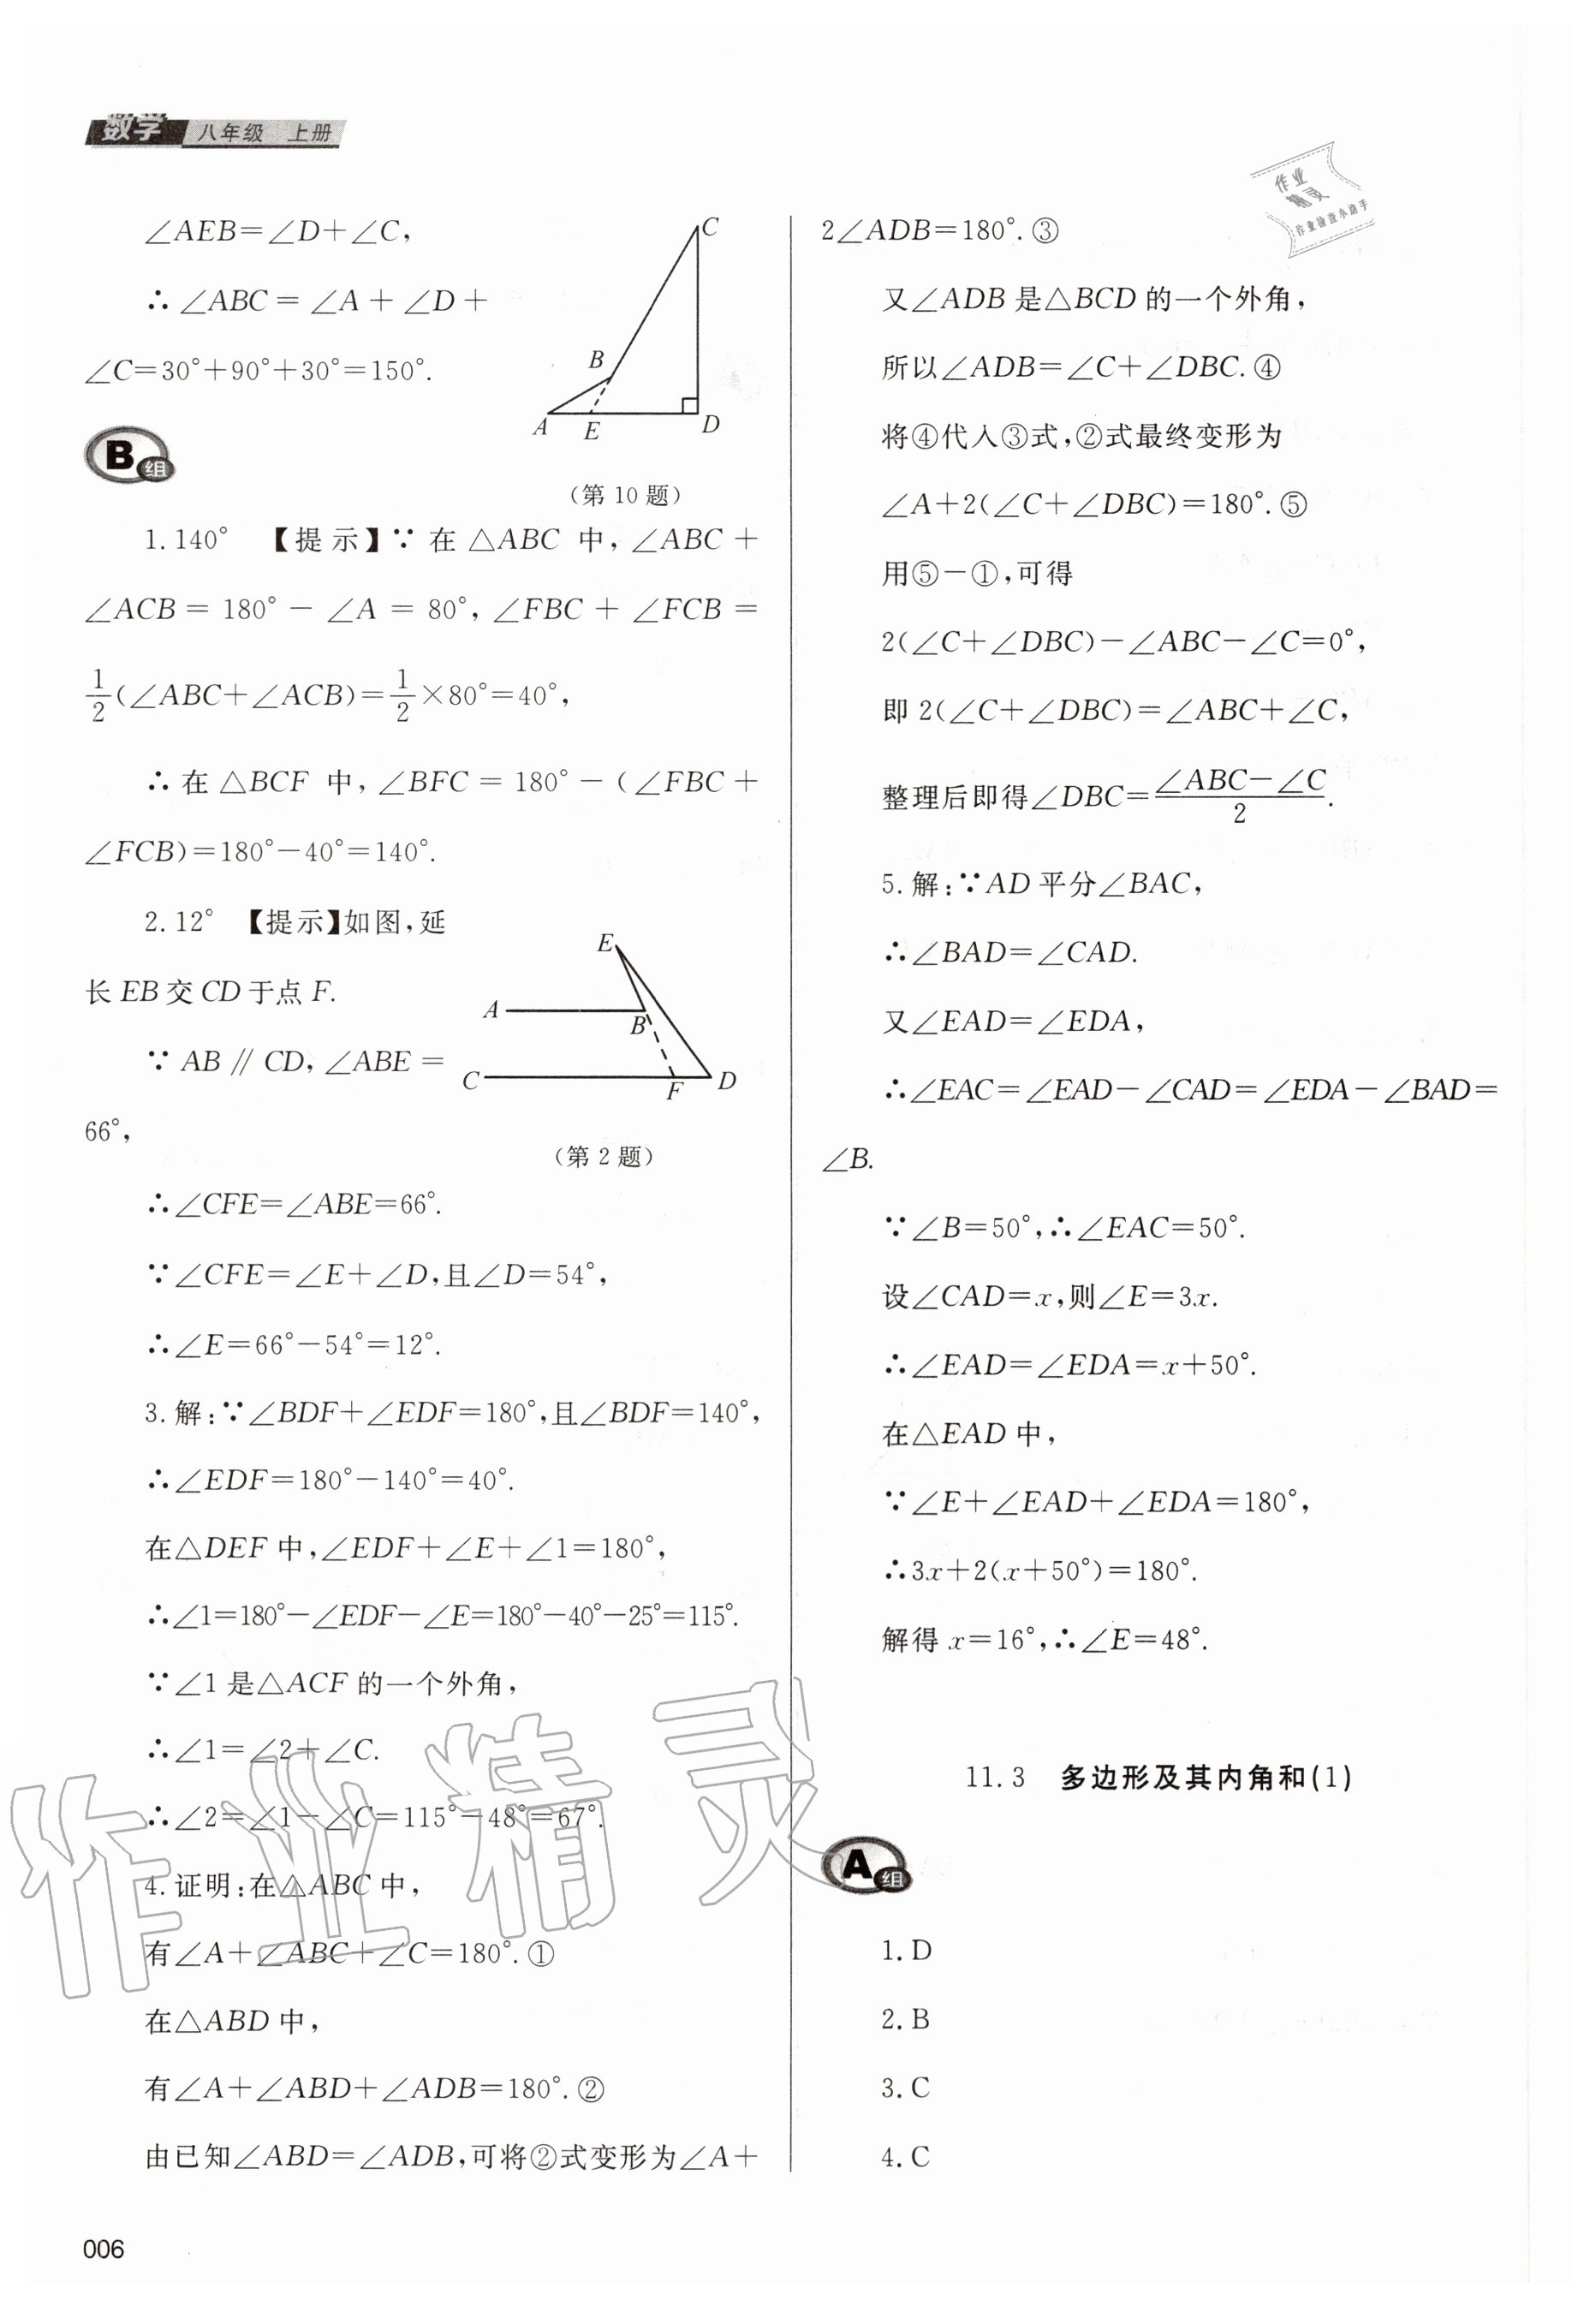 数学 八年级 上册
作业
精灵
作业检查小助手
∠AEB=∠D+∠C,
∴ ∠ABC = ∠A + ∠D +
∠C=30°+90°+30°=150°.
C
B
A
E
D
(第 10 题)
B组
1.140° 【提示】∵ 在 △ABC 中, ∠ABC +
∠ACB = 180° - ∠A = 80°, ∠FBC + ∠FCB =
1/2(∠ABC+∠ACB)=1/2×80°=40°,
∴ 在 △BCF 中, ∠BFC = 180° - ( ∠FBC +
∠FCB)=180°-40°=140°.
2.12° 【提示】如图,延
长 EB 交 CD 于点 F.
∵ AB // CD, ∠ABE =
66°,
E
A
B
C
F
D
(第 2 题)
∴∠CFE=∠ABE=66°.
∵∠CFE=∠E+∠D,且∠D=54°,
∴∠E=66°-54°=12°.
3.解:∵∠BDF+∠EDF=180°,且∠BDF=140°,
∴∠EDF=180°-140°=40°.
在△DEF 中,∠EDF+∠E+∠1=180°,
∴∠1=180°-∠EDF-∠E=180°-40°-25°=115°.
∵∠1 是△ACF 的一个外角,
∴∠1=∠2+∠C.
∴∠2=∠1-∠C=115°-48°=67°.
4.证明:在△ABC 中,
有∠A+∠ABC+∠C=180°.①
在△ABD 中,
有∠A+∠ABD+∠ADB=180°.②
由已知∠ABD=∠ADB,可将②式变形为∠A+
2∠ADB=180°.③
又∠ADB 是△BCD 的一个外角,
所以∠ADB=∠C+∠DBC.④
将④代入③式,②式最终变形为
∠A+2(∠C+∠DBC)=180°.⑤
用⑤-①,可得
2(∠C+∠DBC)-∠ABC-∠C=0°,
即 2(∠C+∠DBC)=∠ABC+∠C,
整理后即得∠DBC=(∠ABC-∠C)/2.
5.解:∵AD 平分∠BAC,
∴∠BAD=∠CAD.
又∠EAD=∠EDA,
∴∠EAC=∠EAD-∠CAD=∠EDA-∠BAD=
∠B.
∵∠B=50°,∴∠EAC=50°.
设∠CAD=x,则∠E=3x.
∴∠EAD=∠EDA=x+50°.
在△EAD 中,
∵∠E+∠EAD+∠EDA=180°,
∴3x+2(x+50°)=180°.
解得 x=16°,∴∠E=48°.
11.3 多边形及其内角和(1)
A组
1.D
2.B
3.C
4.C
作业精灵
006